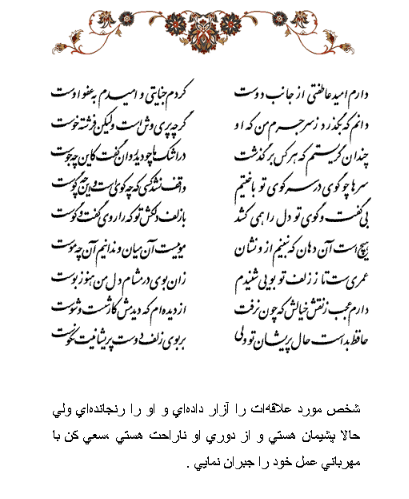 دارم امید عاطفتی از جانب دوست کردم جنایتی و امیدم به عفو اوست
دانم که بگذرد ز سر جرم من که او گرچه پریوش است ولیکن فرشته خوست
چندان گریستم که هر کس که برگذشت در اشک ما چو دید روان گفت کاین چه جوست
سرها چو گوی در سر کوی تو باختیم واقف نشد کسی که چه گوی است و این چه کوست
بی گفت و گوی تو دل را همی کشد با زلف دلکش تو که را روی گفت و گوست
هیچ است آن دهان که نبینم از او نشان موییست آن میان و ندانیم آن چه موست
عمری ست تا ز زلف تو بویی شنیدم زان بوی در مشام دل من هنوز بوست
دارم عجب ز نقش خیالش که چون نرفت از دیده ام که دم به دمش کار شست و شوست
حافظ بد است حال پریشان تو ولی بر بوی زلف دوست پریشانیت نکوست
شخص مورد علاقه‌ات را آزار داده‌اي و او را رنجانده‌اي ولي
حالا پشيمان هستي و از دوري او ناراحت هستي ،سعي كن با
مهرباني عمل خود را جبران نمايي .